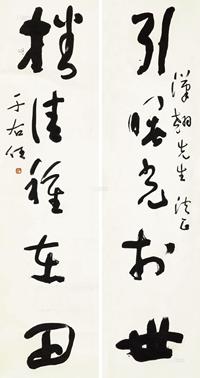 引曙光于世
漢翹先生法正
播佳種在田
于右任